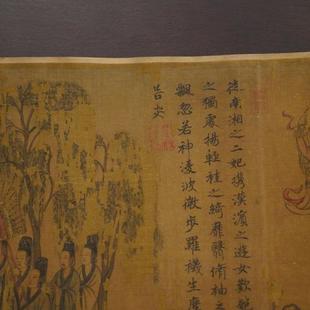 從南湘之二妃携漢濱之遊女歎匏
之獨處揚輕袿之綺靡翳脩袖之
飄忽若神淩波微步羅襪生塵
若安